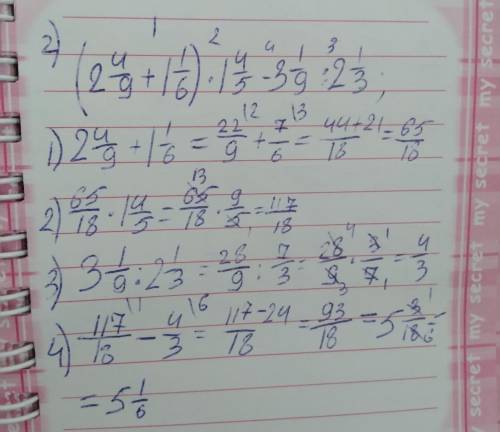 1 2 4 3
2) (2 4/9 + 1 1/6) · 1 4/5 - 3 1/9 : 2 1/3;
1) 2 4/9 + 1 1/6 = 22/9 \2 + 7/6 \3 = 44+21/18 = 65/18
2) 65/18 · 1 4/5 = 65 13/18 · 9/5 1 = 117/18
3) 3 1/9 : 2 1/3 = 28/9 : 7/3 = 28 4/9 3 · 3 1/7 1 = 4/3
4) 117/18 \1 - 4/3 \6 = 117-24/18 = 93/18 = 5 3 1/18 6 =
= 5 1/6
my secret
my secret
my secret
my secret